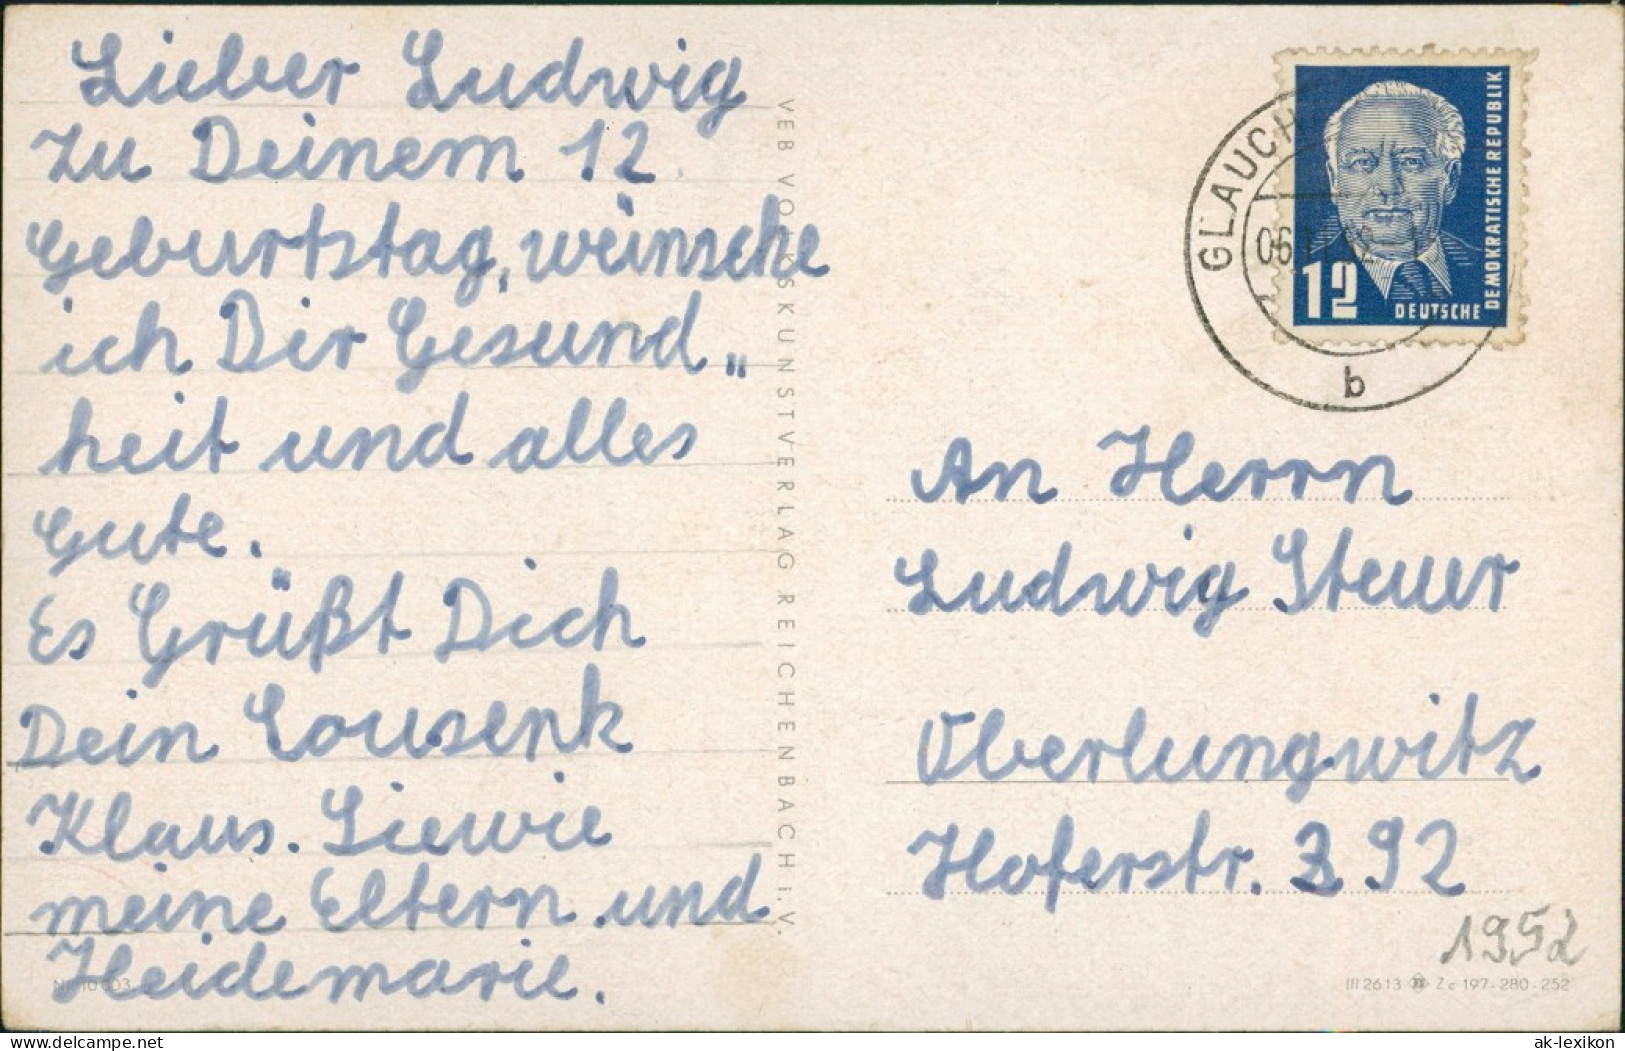 Lieber Ludwig
Zu Deinem 12
Geburtstag, weinsche
ich Dir Gesund„
heit und alles
Gute.
Es Grüßt Dich
Dein Cousenk
Klaus. Siewie
meine Eltern und
Heidemarie.
VEB VOLKSKUNSTVERLAG REICHENBACH i. V.
GLAUCH
b
12
DEUTSCHE
DEMOKRATISCHE REPUBLIK
An Herrn
Ludwig Steuer
Oberlungwitz
Hoferstr. 392
1952
III 26 13 Zc 197-280-252
www.ansichtskarten-lexikon.de
ak-lexikon